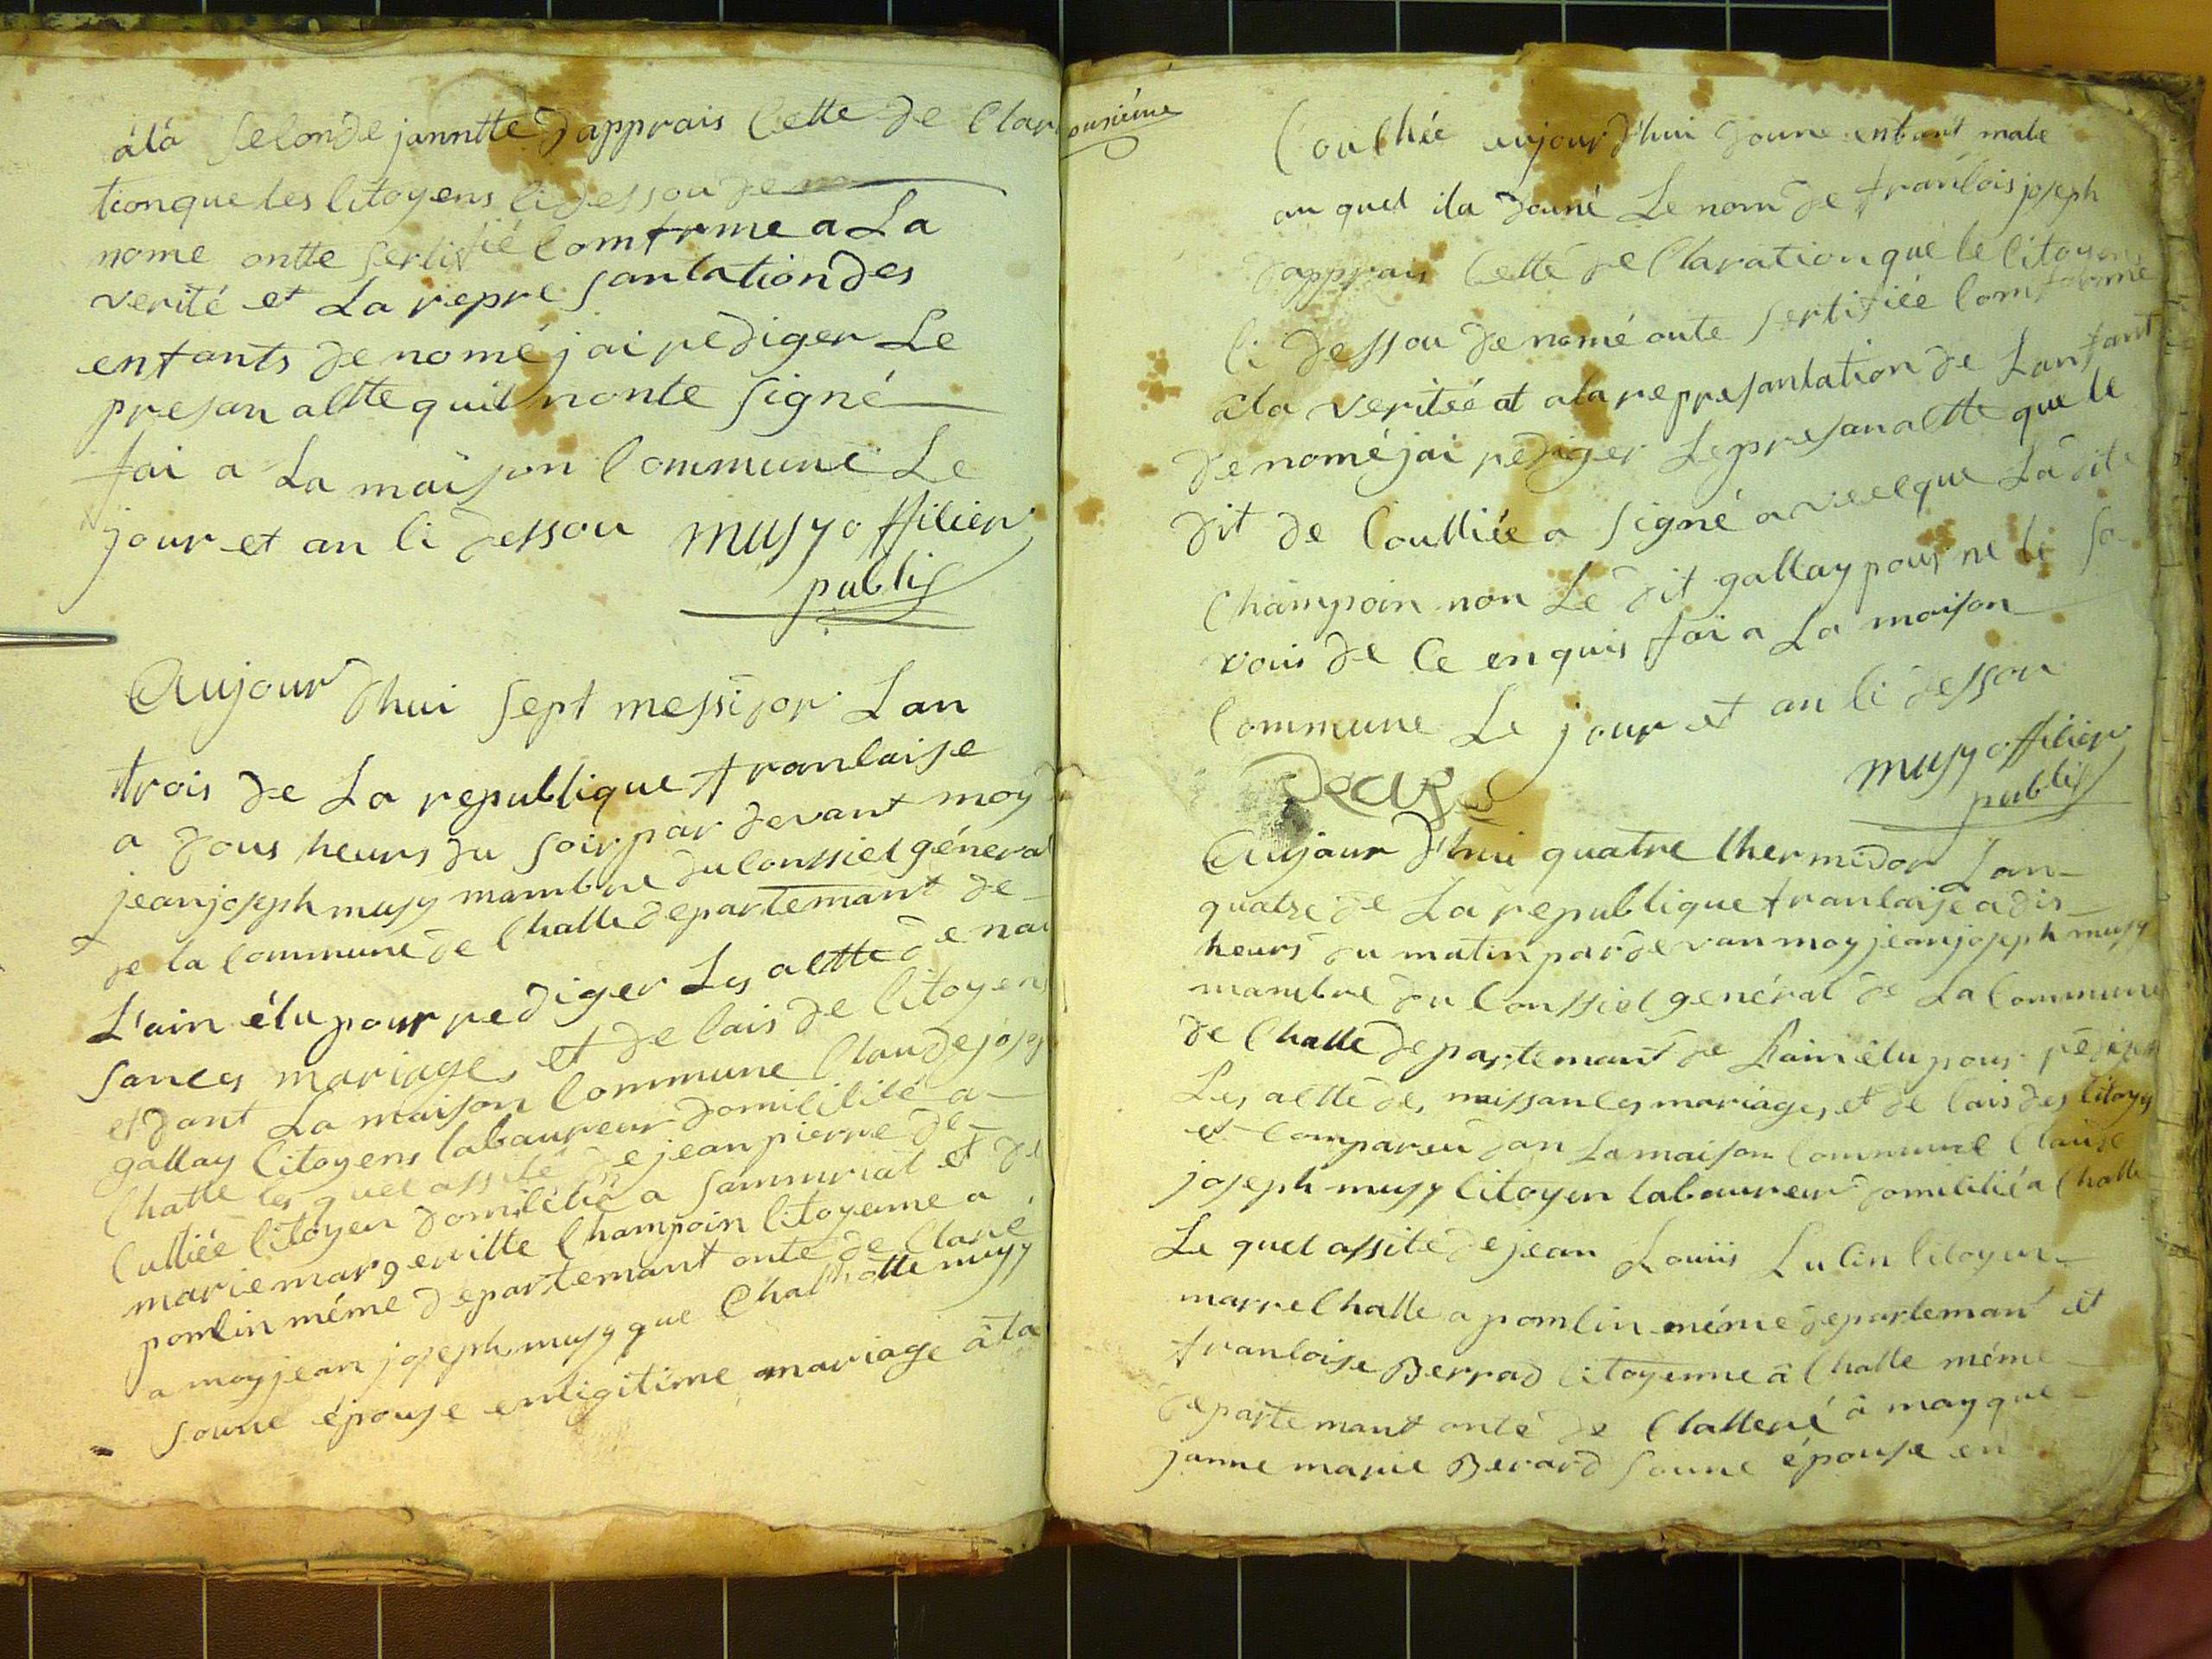 àlà seconde janntte dapprais cette de clar
tion que les citoyens ci dessou de no
nomé ontte sertifié comfrme a La
verité et La repre santation des
enfants de nomé jai rediger Le
presan actte quil nonte signé
fai a La maison commune Le
jour et an ci dessou musy officier
publis
Aujour dhui sept messidor Lan
trois de La republique francaise
a dous heurs du soir par devant moy
jean joseph musy mambre du conssiel géneral
de la commune de Chatte departemant de
L'ain élu pour rediger Les actte de nai
sances mariages et de cais de citoyens
et dant La maison commune Claude josep
gallay citoyens laboureur domicilié a
Chatte les quel assité de jean pierre de
Culliée citoyen domicilié a sammuriat et de
marie margeritte Champoin citoyenne a
poncin méme departemant onte de claré
a moy jean joseph musy que Charlotte musy
soune épouse enligitime mariage à la
onsiéme
Couchée aujour d'hui doune enfant male
au quel ila douné Le nom de francois joseph
dapprais cette de claration que le citoyens
ci dessou de nomé onte sertifiée comforme
àla veritéé et ala represantation de Lanfant
de nomé jai rediger Le presan actte que le
dit de Coulliée a signé avecque La dite
Champoin non Le dit gallay pour ne le sa
vois de ce enquis fai a La maison
commune Le jour et an ci dessou
musy officier
publis
Aujour d'hui quatre thermidor Lan
quatre de La republique francaise a dis
heurs du matin par devan moy jean joseph musy
mambre du conssiel genéral de La commune
de Chatte departemant de L'ain élu pour rediger
Les actte des naissances mariages et de cais des citoys
et compareu dan La maison commune Claude
joseph musy citoyen laboureur domicilié a Chatte
Le quel assité de jean Louiis Lulin citoyen
marrechalle a poncin méme departeman et
francoise Berrad citoyenne à Chatte méme
departemant onté de Clatteré à moy que
janne marie Berard soune épouse en